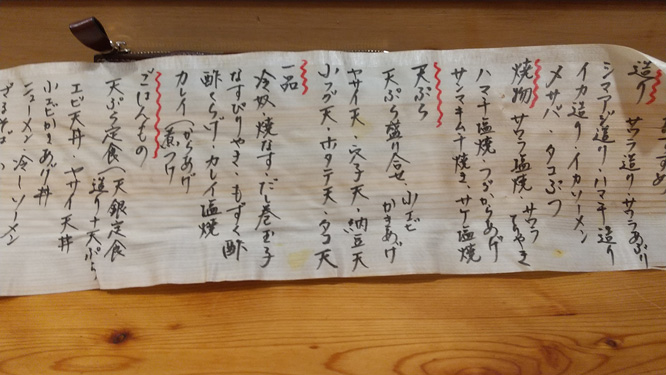 造り
サワラ造り・サワラあぶり
シマアジ造り・ハマチ造り
イカ造り・イカソーメン
メサバ・タコぶつ
焼物
サワラ塩焼・サワラてりやき
ハマチ塩焼・つぶからあげ
サンマキムチ焼き・サケ塩焼
天ぷら
天ぷら盛り合せ・小エビかきあげ
ヤサイ天・穴子天・納豆天
小フグ天・ホタテ天・タコ天
一品
冷奴・焼なす・だし巻玉子
なすぴりやき・もずく酢
酢くらげ・カレイ塩焼
カレイ(からあげ 煮つけ
ごはんもの
天ぷら定食(天銀定食
(造り+天ぷら)
エビ天丼・ヤサイ天丼
小エビかきあげ丼
ニューメン・冷しソーメン